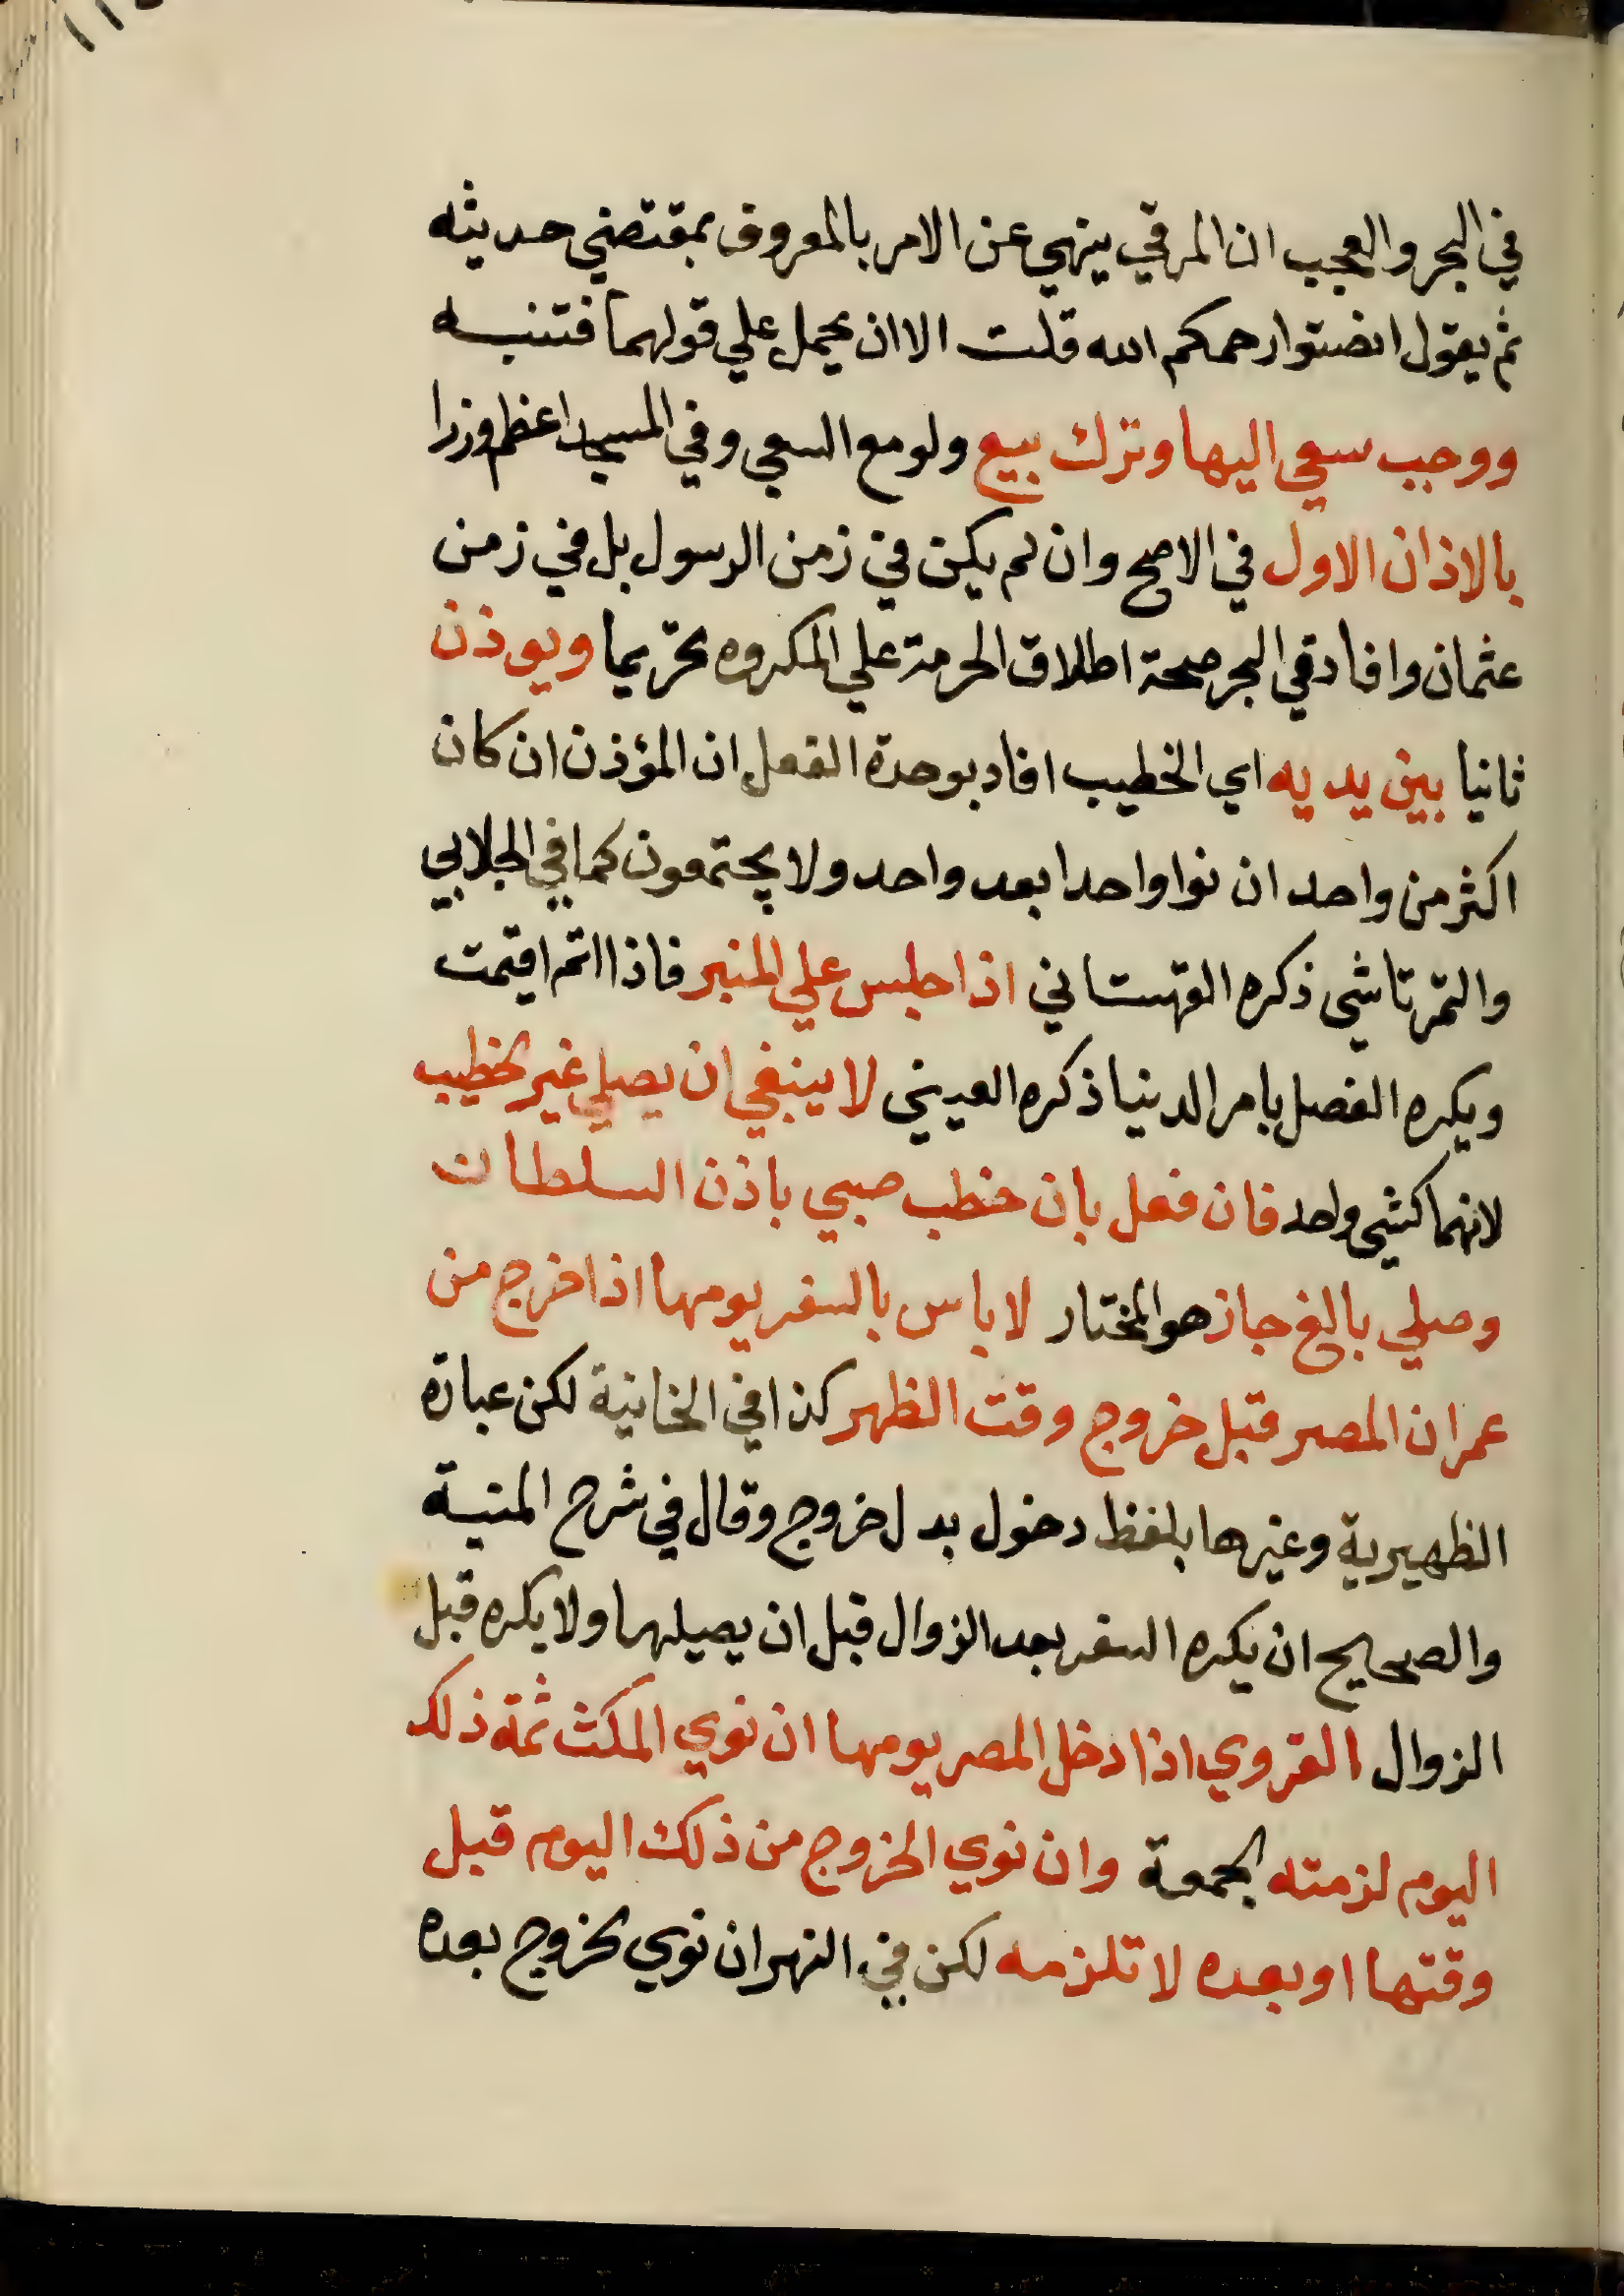 في البحر والعجب ان المرقي ينهي عن الامر بالمعروف بمقتضي حديثه
ثم يقول انصتوا رحمكم الله قلت الا ان يحمل علي قولهما فتنبه
ووجب سعي اليها وترك بيع ولو مع السعي وفي المسجد اعظم وزرا
بالاذان الاول في الاصح وان لم يكن في زمن الرسول بل في زمن
عثمان وافاد في البحر صحة اطلاق الحرمة علي المكروه تحريما ويوذن
ثانيا بين يديه اي الخطيب افاد بوحدة الفعل ان المؤذن ان كان
اكثر من واحد ان نوا واحدا بعد واحد ولا يجتمعون كما في الجلابي
والتمرتاشي ذكره القهستاني اذا جلس علي المنبر فاذا اتم اقيمت
ويكره الفصل بامر الدنيا ذكره العيني لا ينبغي ان يصلي غير الخطيب
لانهما كشي واحد فان فعل بان خطب صبي باذن السلطان
وصلي بالغ جاز هو المختار لا باس بالسفر يومها اذا خرج من
عمران المصر قبل خروج وقت الظهر كذا في الخانية لكن عبارة
الظهيرية وغيرها بلفظ دخول بدل خروج وقال في شرح المنية
والصحيح ان يكره السفر بعد الزوال قبل ان يصيلها ولا يكره قبل
الزوال القروي اذا دخل المصر يومها ان نوي المكث ثمة ذلك
اليوم لزمته الجمعة وان نوي الخروج من ذلك اليوم قبل
وقتها او بعده لا تلزمه لكن في النهر ان نوي الخروج بعده